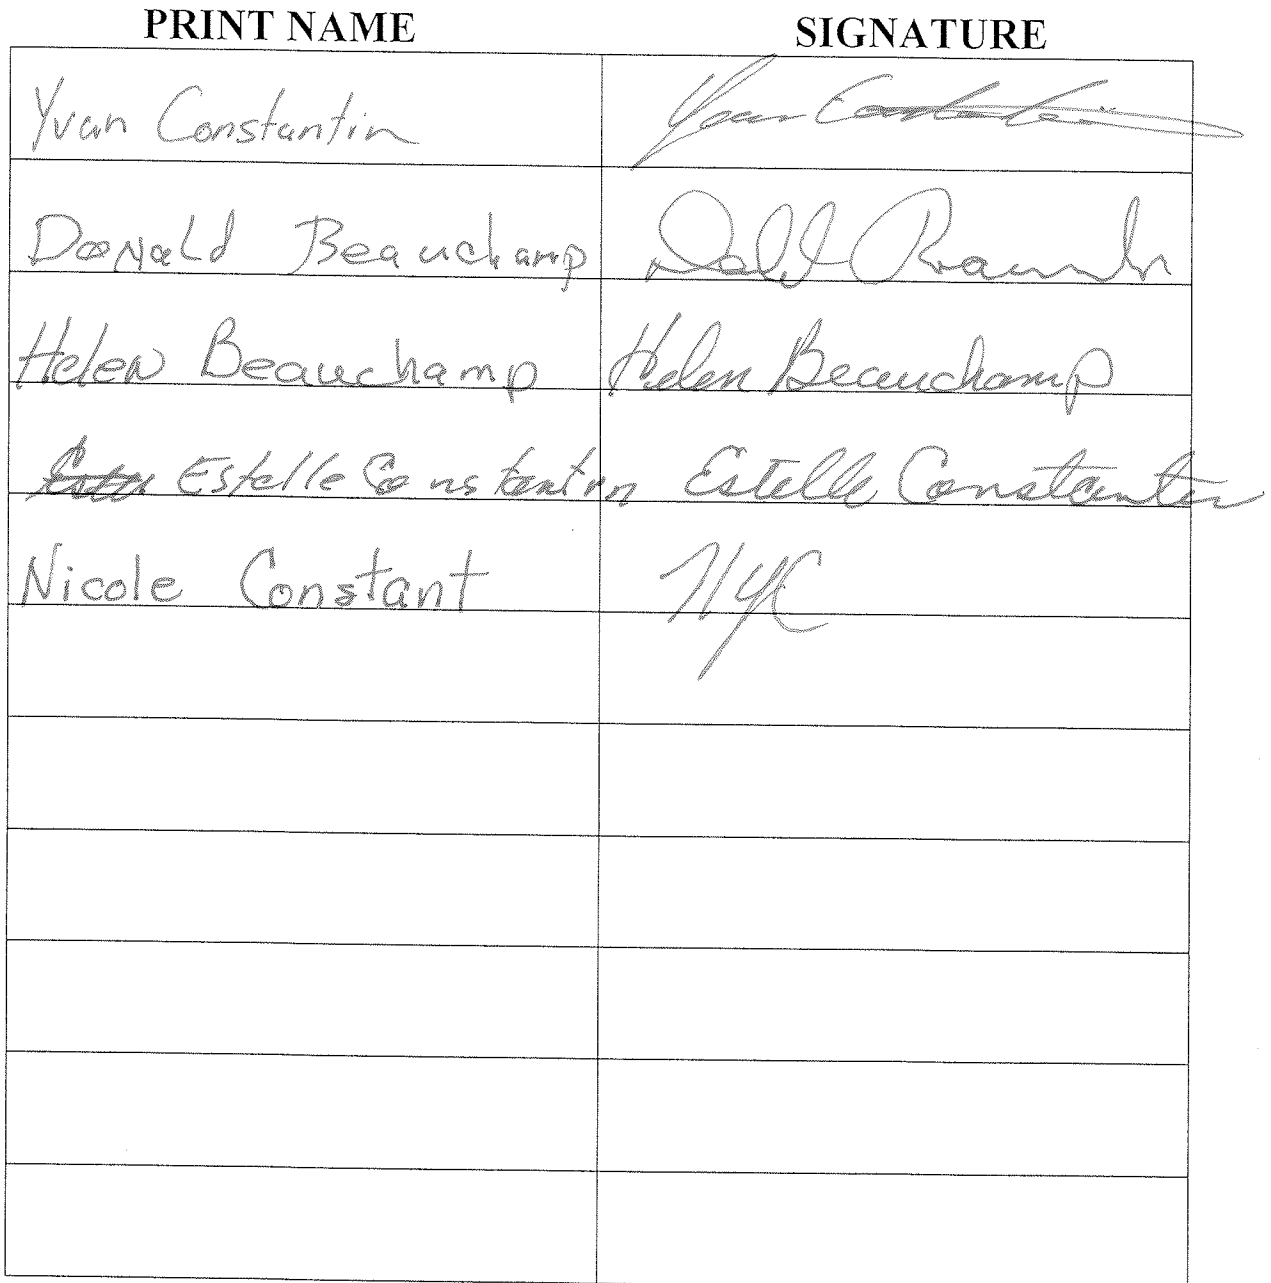 PRINT NAME SIGNATURE
Yvan Constantin Yvan Constantin
Donald Beauchamp
Helen Beauchamp Helen Beauchamp
Estelle Constantin Estelle Constantin
Nicole Constant NYC